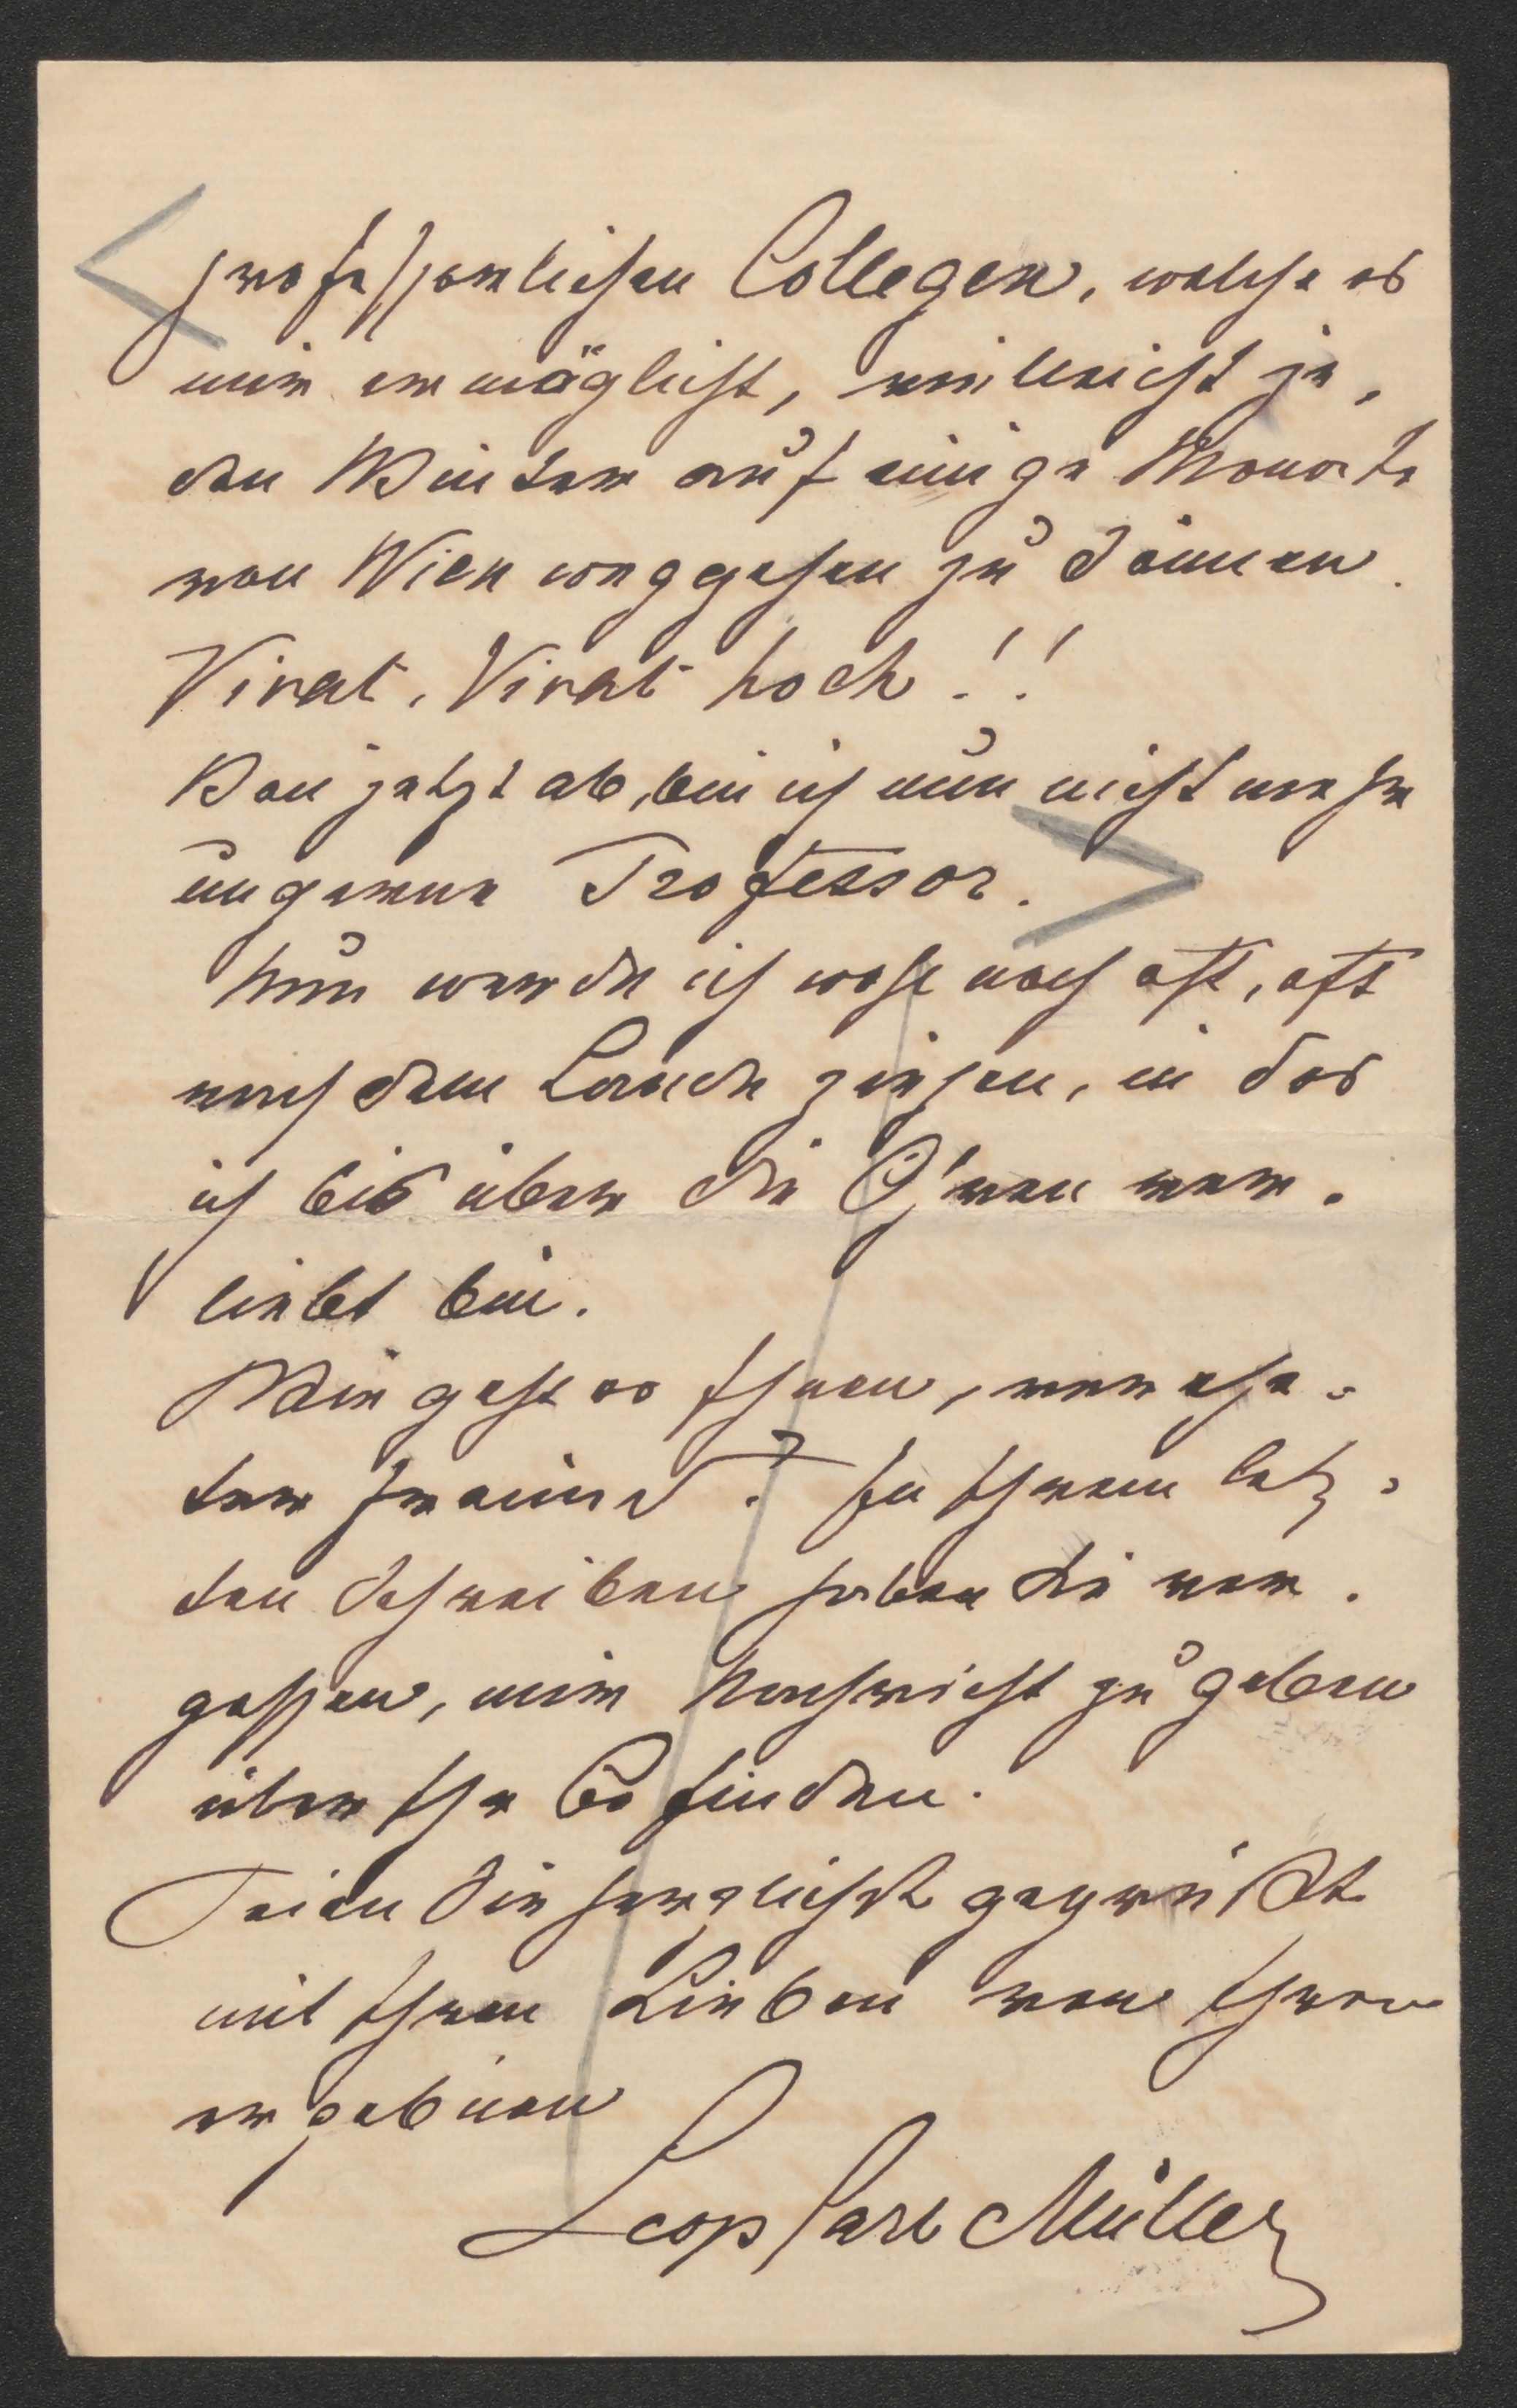 professorlichen Collegen, welche es
mir ermöglicht, vielleicht je-
den Winter auf einige Monate
von Wien weggehen zu können.
Vivat, Vivat hoch!!
Von jetzt ab, bin ich nun nicht mehr
ungerne Professor.
Nun werde ich wohl noch oft, oft
nach dem Lande ziehen, in das
ich bis über die Ohren ver-
liebt bin.
Wie geht es Ihnen, verehr-
ter Freund? In Ihrem letz-
ten Schreiben haben Sie ver-
gessen, mir Nachricht zu geben
über Ihr Befinden.
Seien Sie herzlichst gegrüßt
mit Ihren Lieben von Ihrem
ergebnen
Leop Carl Müller